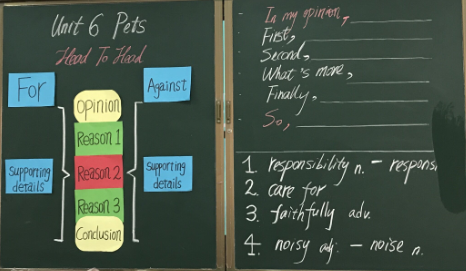 Unit 6 Pets
Head To Head
For
Against
Opinion
Reason 1
Reason 2
Reason 3
Conclusion
Supporting
details
Supporting
details
In my opinion,
First,
Second,
What's more,
Finally,
So,
1. responsibility n. - responsi
2. care for
3. faithfully adv.
4. noisy adj. - noise n.